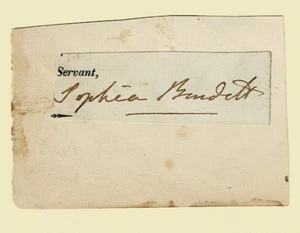 Servant,
Sophia Burdett